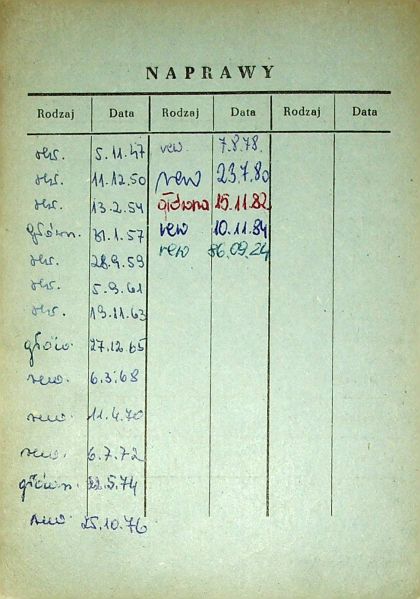 NAPRAWY
Rodzaj Data Rodzaj Data Rodzaj Data
okr. 5.11.47 rew 7.8.78.
okr. 11.12.50 rew 23.7.80
okr. 13.2.54 główna 15.11.82
główn. 31.1.57 rew 10.11.84
okr. 28.9.59 rew 86.09.24
okr. 5.9.61
okr. 19.11.63
głów. 27.12.65
rew. 6.3.68
rew. 11.4.70
rew. 6.7.72
główn. 22.5.74
rew 25.10.76